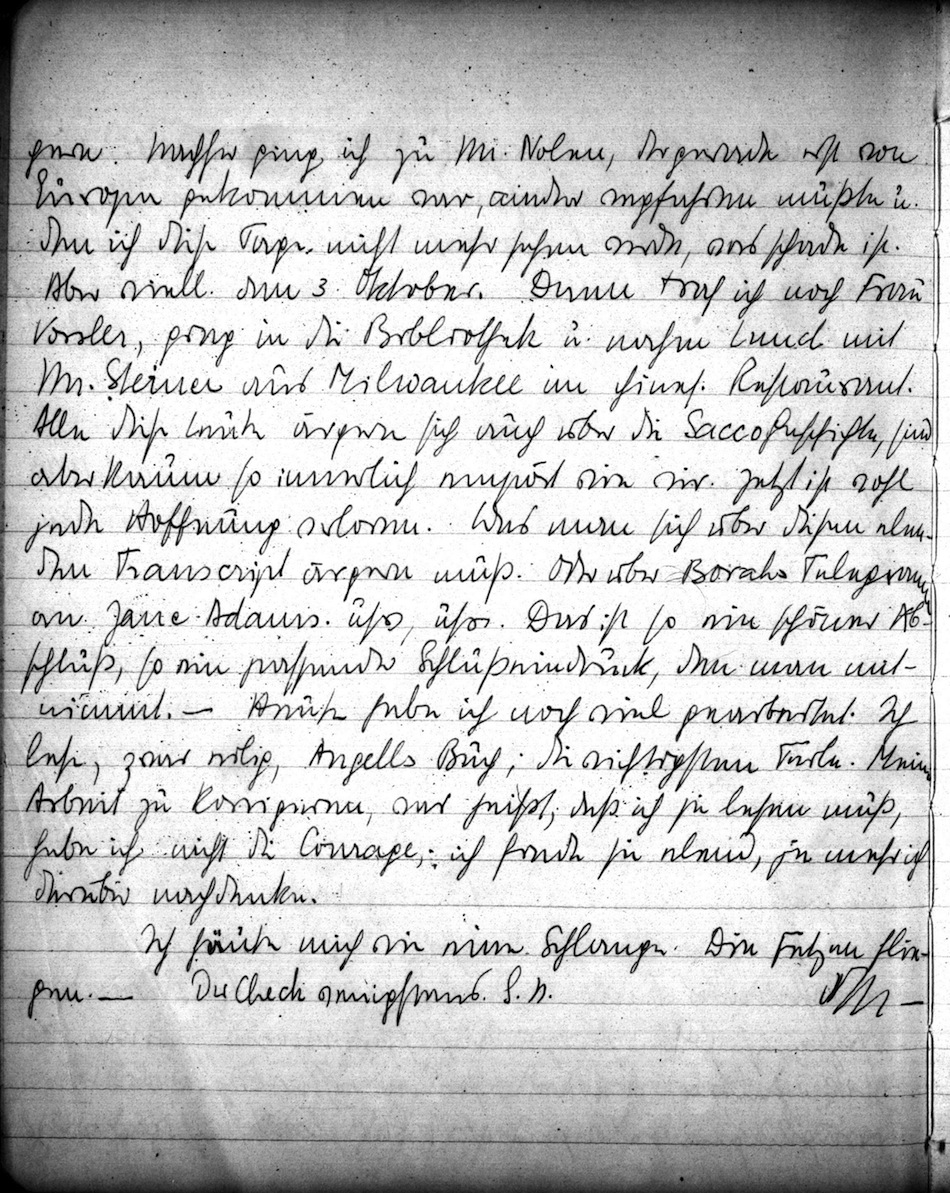 gern. Nachher ging ich zu Mr. Nolen, der gerade erst von
Europa gekommen war, wieder wegfahren mußte u.
den ich diese Tage nicht mehr sehen werde, was schade ist.
Aber viell. am 3. Oktober. Dann traf ich noch Frau
Vossler, ging in die Bibliothek u. nahm Lunch mit
Mr. Steiner aus Milwaukee im chines. Restaurant.
Alle diese Leute ärgern sich auch über die Saccogeschichte, sind
aber kaum so innerlich empört wie wir. Jetzt ist wohl
jede Hoffnung verloren. Was man sich über diesen elen-
den Transcript ärgern muß. Oder über Borahs Telegramm
an Jane Adams. usw, usw. Das ist so ein schöner Ab-
schluß, so ein passender Schlußeindruck, den man mit-
nimmt. — Heute habe ich noch viel gearbeitet. Ich
lese, zwar eilig, Angells Buch; die wichtigsten Teile. Meine
Arbeit zu korrigieren, was heißt, daß ich sie lesen muß,
habe ich nicht die Courage; ich finde sie elend, je mehr ich
darüber nachdenke.
Ich häute mich wie eine Schlange. Die Fetzen flie-
gen. — Der Check wenigstens. G. N.